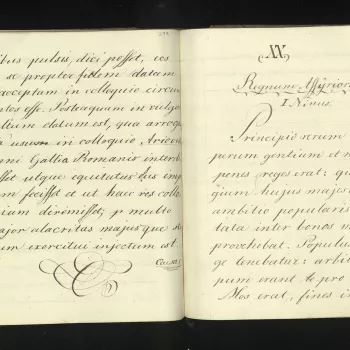 ibus pulsis, dici posset, eos
se propter fidem datam
acceptum in colloquio circum
tos esse. Posteaquam in vulgo
datum est, qua arrog
usum in colloquio Ariov
ni Gallia Romanis interd
sset utque equitatus
fecisset et ut haec res collo
ium diremisset,
ajor alacritas majus que
um exercitus injectum est.
Causa
XX
Regnum Assyrior
I Ninus.
Principio rerum
tium gentium et n
penes reges erat: qu
gium hujus majes
ambitio popularis
tata inter bonos m
provehebat. Populu
ge tenebatur: arbit
pum erant te pro
Mos erat, fines i